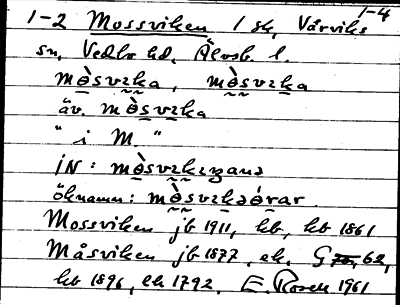 1-4
1-2 Mossviken 1 sk, Vårviks
sn, Vedbo hd, Älvsb. l.
mɵ̀svɪka, mɵ̀svɪka
äv. mɵ̀svɪka
" i M. "
IN: mɵ̀svɪkɪŋanə
öknamn: mɵ̀svɪkəɵ́rar
Mossviken jb 1911, kb, kb 1861
Måsviken jb 1877, ek. G 62,
kb 1896, ek 1792. E. Rosell 1961